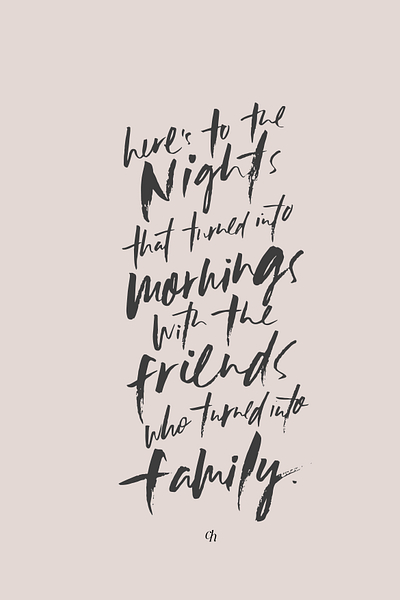 here's to the
Nights
that turned into
mornings
with the
friends
who turned into
family.
ch